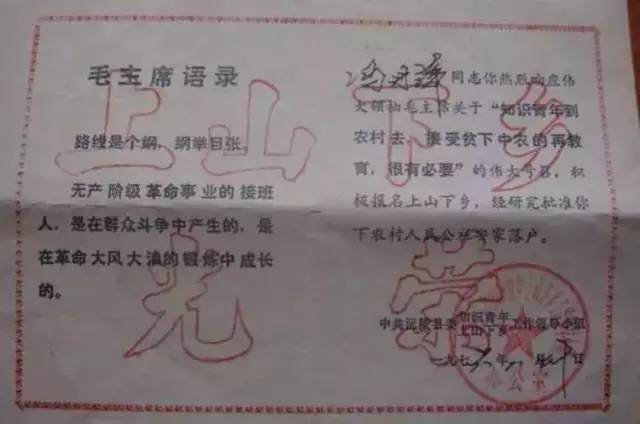 上山下乡
光荣
毛主席语录
路线是个纲，纲举目张。
无产阶级革命事业的接班
人，是在群众斗争中产生的，是
在革命大风大浪的锻炼中成长
的。
同志你热烈响应伟
大领袖毛主席关于“知识青年到
农村去，接受贫下中农的再教
育，很有必要”的伟大号召，积
极报名上山下乡，经研究批准你
下农村人民公社安家落户。
中共沅陵县委知识青年上山下乡工作领导小组
一九七 年 月 日
办公室